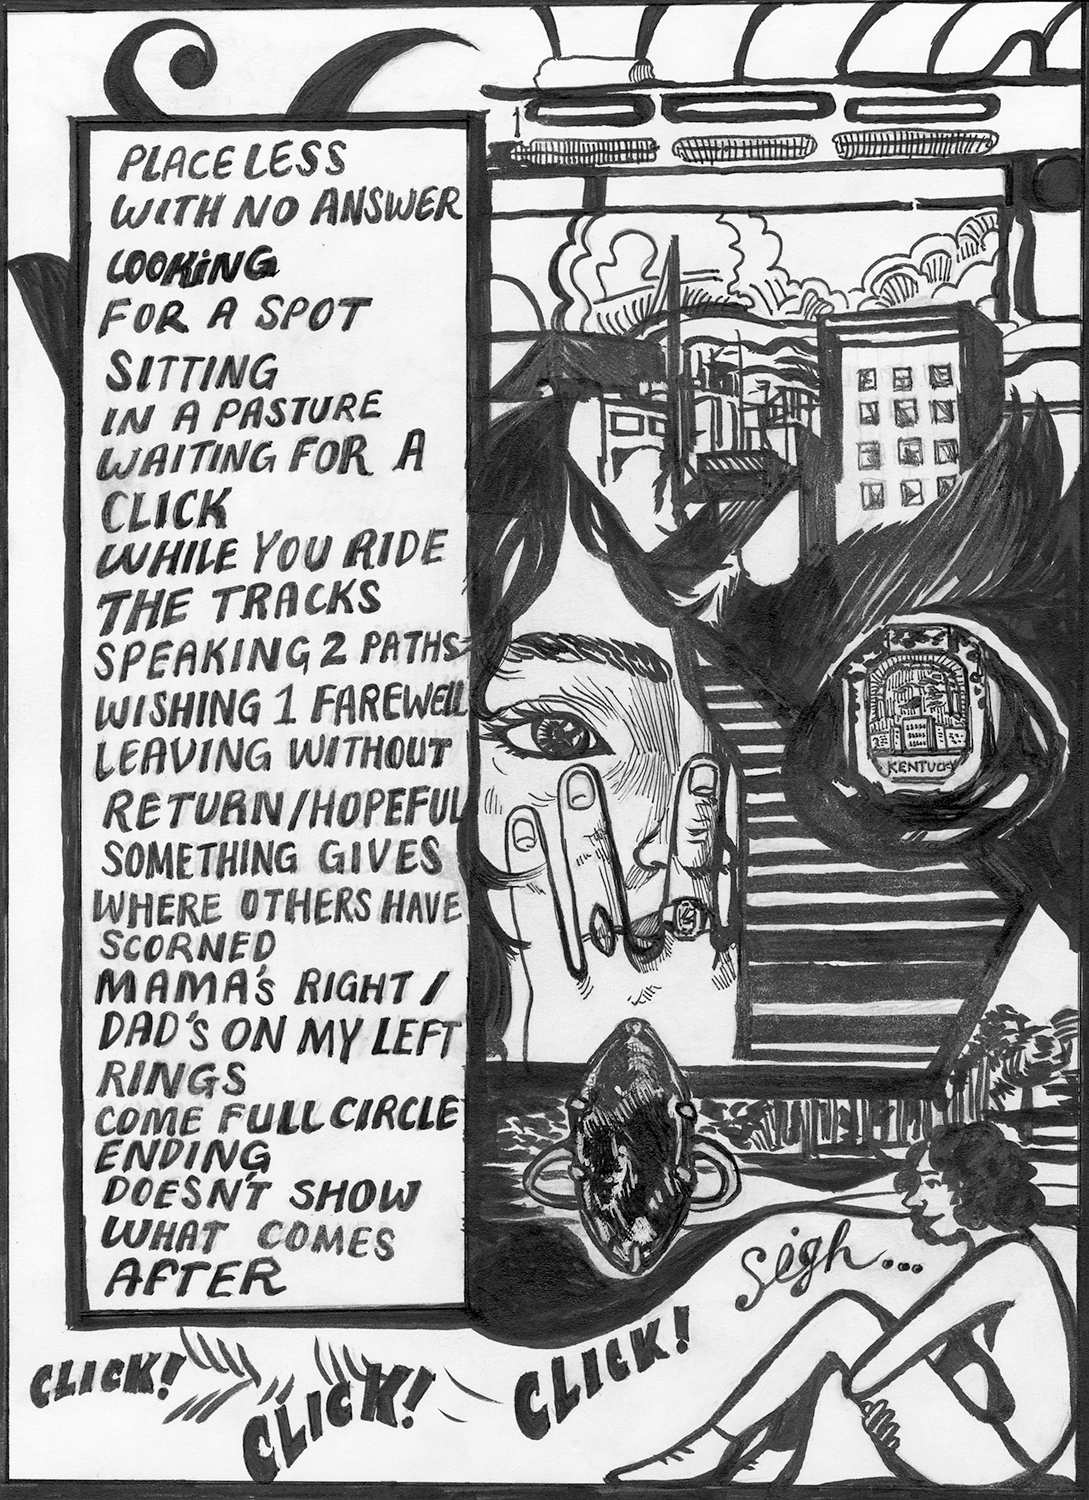 PLACELESS
WITH NO ANSWER
LOOKiNG
FOR A SPOT
SITTING
IN A PASTURE
WAITING FOR A
CLICK
WHILE YOU RIDE
THE TRACKS
SPEAKING 2 PATHS
WISHING 1 FAREWELL
LEAVING WITHOUT
RETURN/HOPEFUL
SOMETHING GIVES
WHERE OTHERS HAVE
SCORNED
MAMA'S RIGHT /
DAD'S ON MY LEFT
RINGS
COME FULL CIRCLE
ENDING
DOESN'T SHOW
WHAT COMES
AFTER
KENTUCKY
sigh...
CLICK!
CLICK!
CLICK!